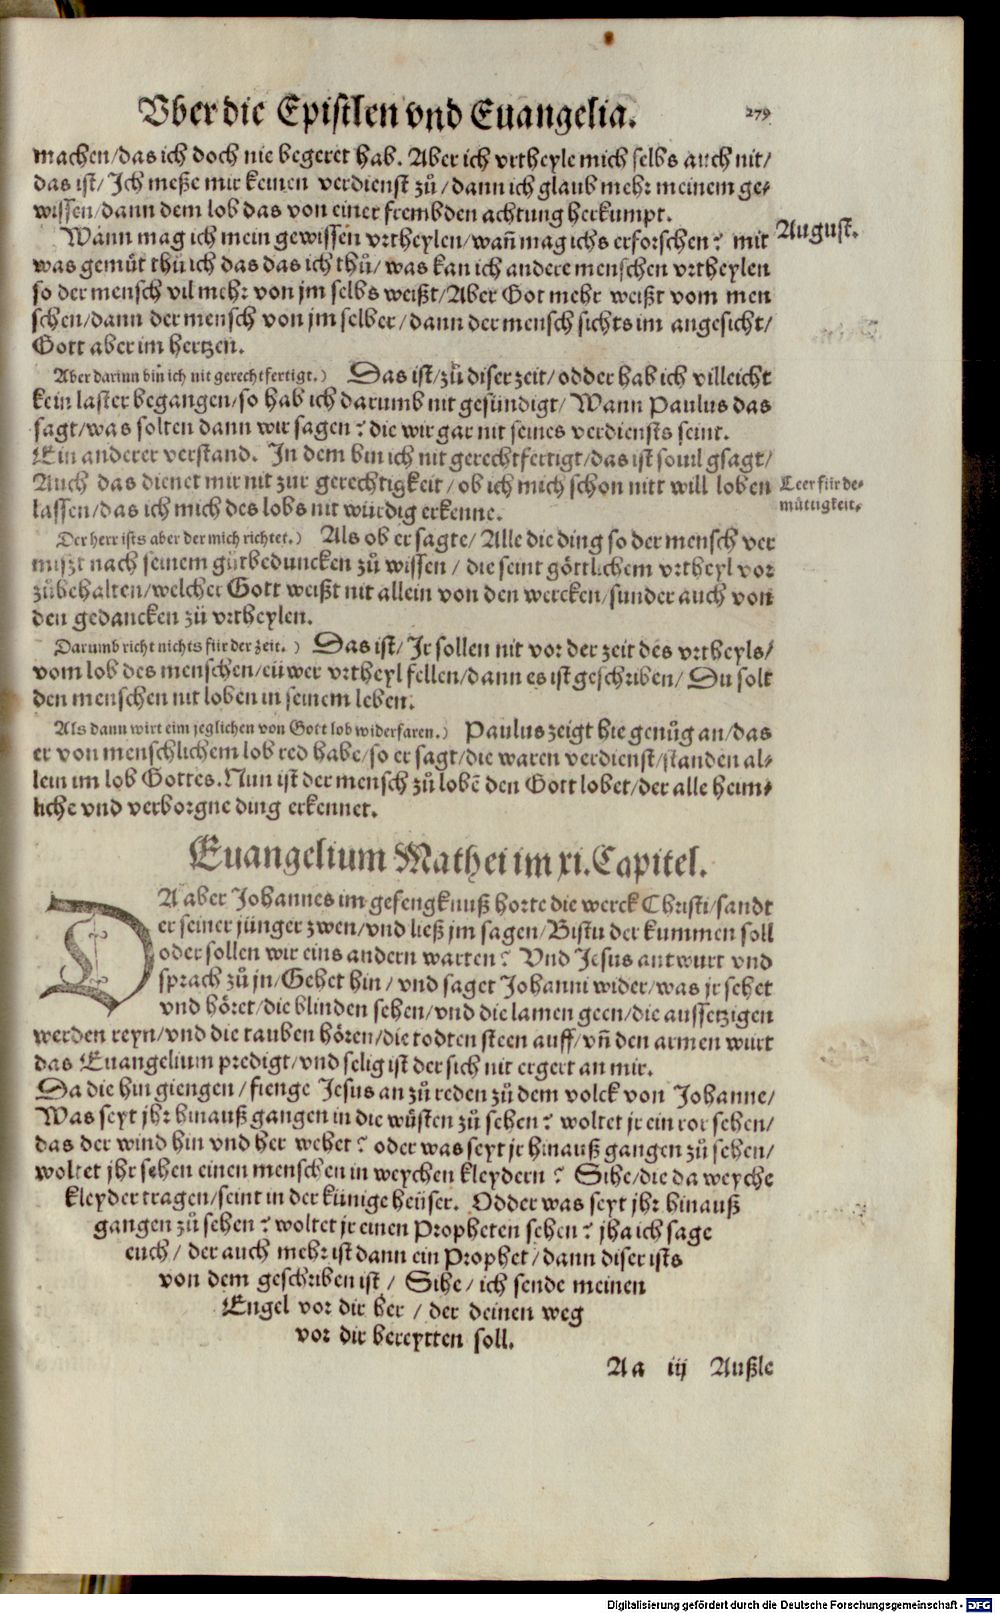 Vber die Epistlen vnd Euangelia. 279
machen/das ich doch nie begeret hab. Aber ich vrtheyle mich selbs auch nit/
das ist/ Ich meße mir keinen verdienst zů/dann ich glaub mehr meinem ge-
wissen/dann dem lob das von einer frembden achtung herkumpt.
Wann mag ich mein gewissen vrtheylen/wañ mag ichs erforschen? mit
August.
was gemüt thů ich das das ich thů/was kan ich andere menschen vrtheylen
so der mensch vil mehr von jm selbs weißt/Aber Got mehr weißt vom men
schen/dann der mensch von jm selber/dann der mensch sichts im angesicht/
Gott aber im hertzen.
Aber darinn biñ ich nit gerechtfertigt.) Das ist/zů diser zeit/odder hab ich villeicht
kein laster begangen/so hab ich darumb nit gesündigt/ Wann Paulus das
sagt/was solten dann wir sagen? die wir gar nit seines verdiensts seint.
Ein anderer verstand. In dem bin ich nit gerechtfertigt/das ist souil gsagt/
Auch das dienet mir nit zur gerechtigkeit/ob ich mich schon nitt will loben
Leer für de-
müttigkeit.
lassen/das ich mich des lobs nit würdig erkenne.
Der herr ists aber der mich richtet.) Als ob er sagte/ Alle die ding so der mensch ver
miszt nach seinem gůtbeduncken zů wissen/ die seint göttlichem vrtheyl vor
zůbehalten/welcher Gott weißt nit allein von den wercken/sunder auch von
den gedancken zů vrtheylen.
Darumb richt nichts für der zeit.) Das ist/ Ir sollen nit vor der zeit des vrtheyls/
vom lob des menschen/eüwer vrtheyl fellen/dann es ist geschriben/ Du solt
den menschen nit loben in seinem leben.
Als dann wirt eim jeglichen von Gott lob widerfaren.) Paulus zeigt hie genůg an/das
er von menschlichem lob red habe/so er sagt/die waren verdienst/standen al-
lein im lob Gottes. Nun ist der mensch zů lobē den Gott lobet/der alle heim-
liche vnd verborgne ding erkennet.
Euangelium Mathei im xi. Capitel.
DA aber Johannes im gefengknuß horte die werck Christi/sandt
er seiner jünger zwen/vnd ließ jm sagen/Bistu der kummen soll
oder sollen wir eins andern warten? Vnd Jesus antwurt vnd
sprach zů jn/Gehet hin/ vnd saget Johanni wider/was jr sehet
vnd höret/die blinden sehen/vnd die lamen geen/die aussetzigen
werden reyn/vnd die tauben hören/die todten steen auff/vñ den armen würt
das Euangelium predigt/vnd selig ist der sich nit ergert an mir.
Da die hin giengen/ fienge Jesus an zů reden zů dem volck von Johanne/
Was seyt jhr hinauß gangen in die wůsten zů sehen? woltet jr ein ror sehen/
das der wind hin vnd her wehet? oder was seyt jr hinauß gangen zů sehen/
woltet jhr sehen einen menschen in weychen kleydern? Sihe/die da weyche
kleyder tragen/seint in der künige heüser. Odder was seyt jhr hinauß
gangen zů sehen? woltet jr einen Propheten sehen? jha ich sage
euch/ der auch mehr ist dann ein Prophet/dann diser ists
von dem geschriben ist/ Sihe/ich sende meinen
Engel vor dir her/ der deinen weg
vor dir bereytten soll.
Aa iij Außle
Digitalisierung gefördert durch die Deutsche Forschungsgemeinschaft - DFG